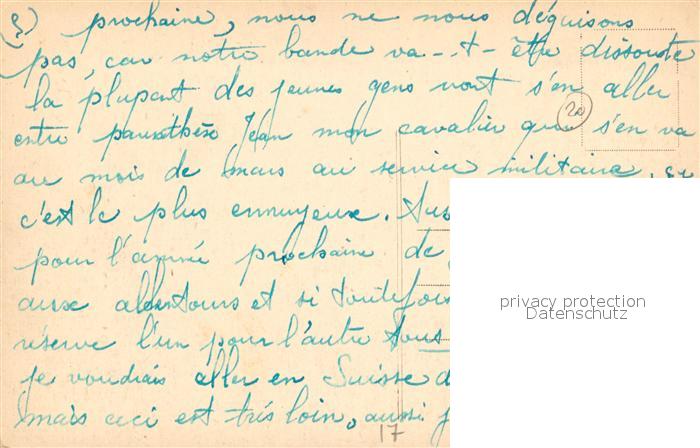 prochaine, nous ne nous déguisons
pas, car notre bande va-t- être dissoute
la plupart des jeunes gens vont s'en aller
entre paranthèse Jean mon cavalier qui s'en va
20
au mois de mars au service militaire,
c'est le plus ennuyeux. Aus
pour l'année prochaine de
aux alentours et si toutefois
réserve l'un pour l'autre tous
je voudrais aller en Suisse d
mais ceci est très loin, aussi j
17
privacy protection
Datenschutz